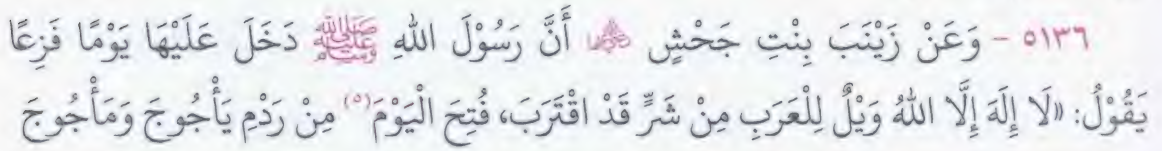 ٥١٣٦ - وَعَنْ زَيْنَبَ بِنْتِ جَحْشٍ ﵂ أَنَّ رَسُوْلَ اللهِ ﷺ دَخَلَ عَلَيْهَا يَوْمًا فَزِعًا
يَقُوْلُ: «لَا إِلَهَ إِلَّا اللهُ وَيْلٌ لِلْعَرَبِ مِنْ شَرٍّ قَدْ اقْتَرَبَ، فُتِحَ الْيَوْمَ(٥) مِنْ رَدْمِ يَأْجُوجَ وَمَأْجُوجَ